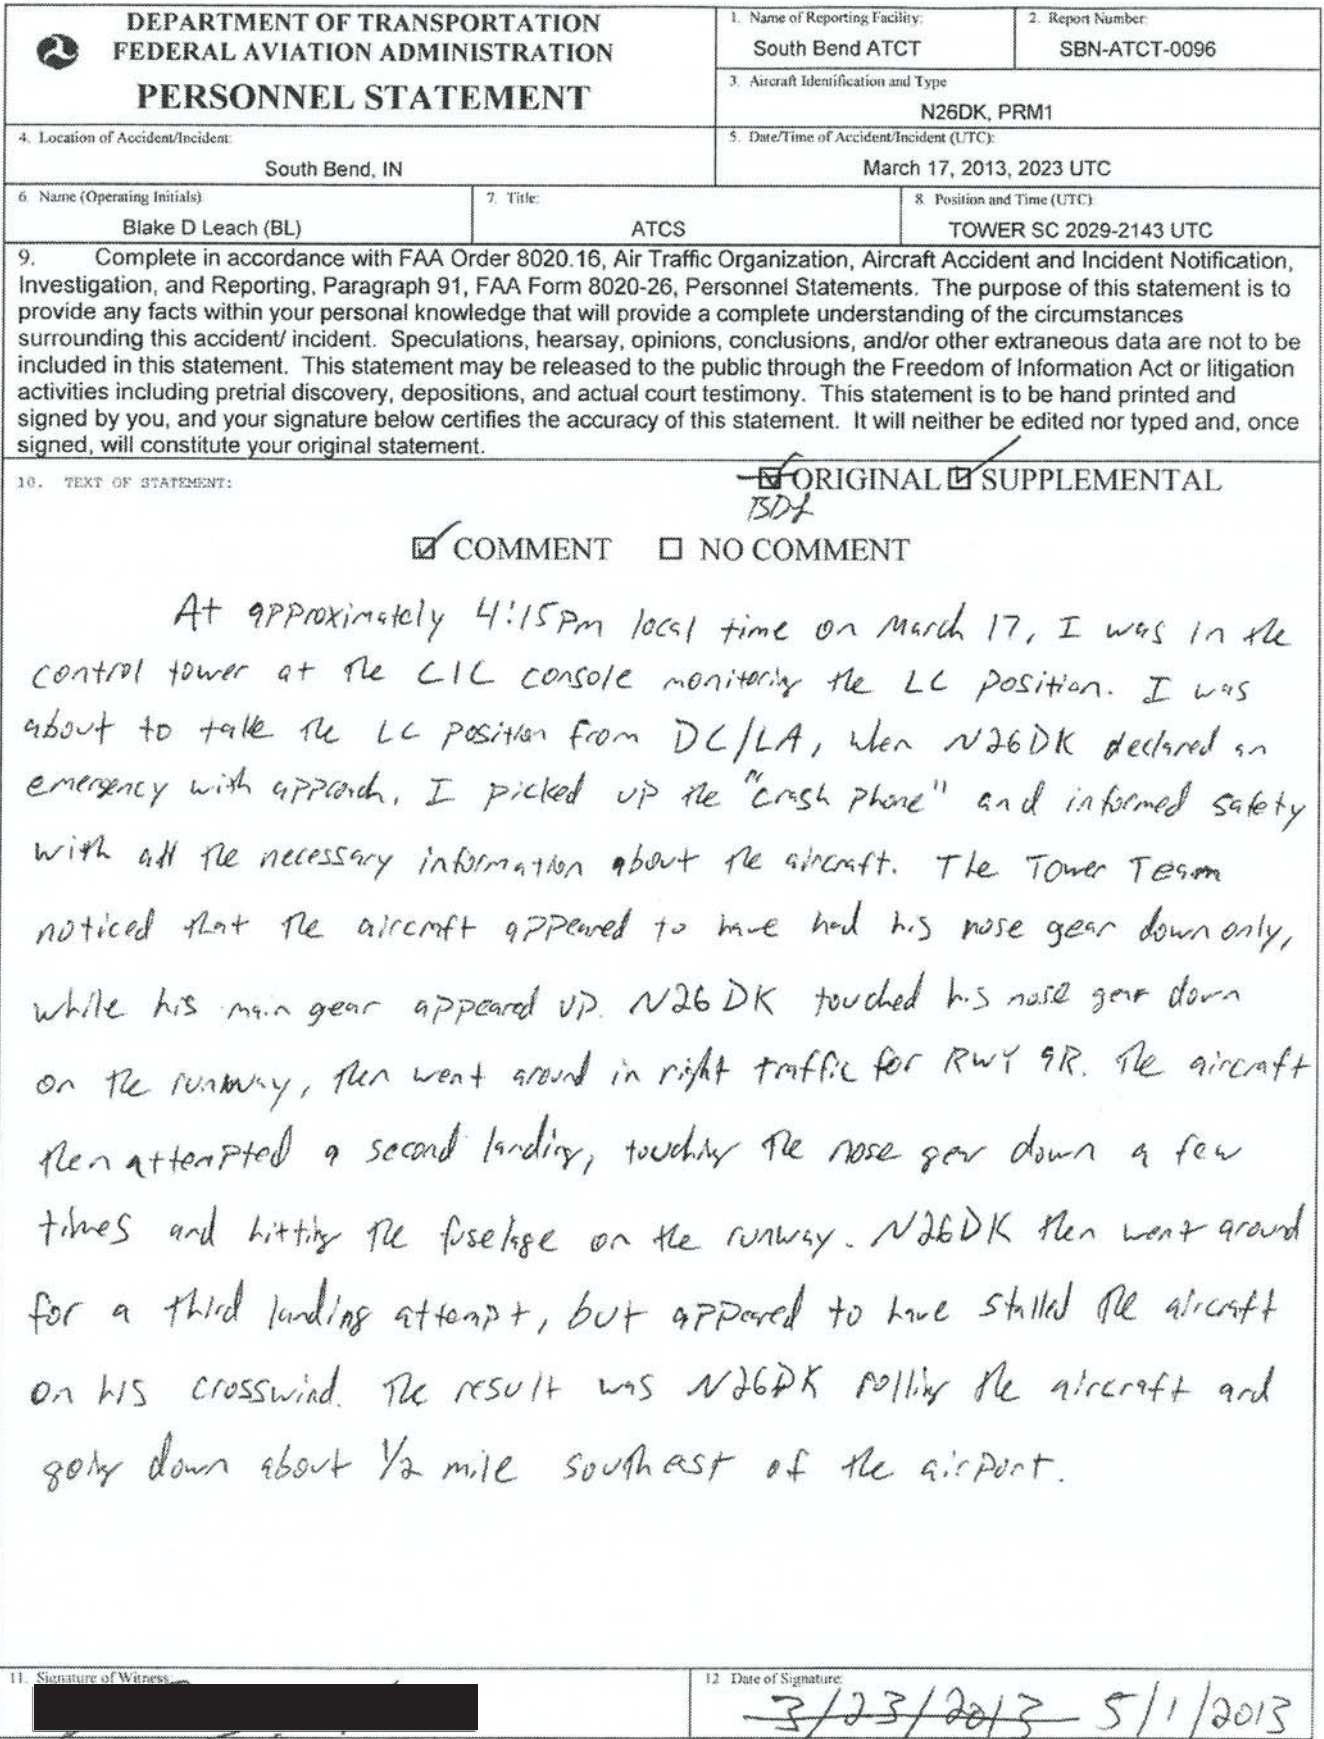 DEPARTMENT OF TRANSPORTATION
FEDERAL AVIATION ADMINISTRATION
PERSONNEL STATEMENT
1. Name of Reporting Facility:
South Bend ATCT
2. Report Number
SBN-ATCT-0096
3. Aircraft Identification and Type
N26DK, PRM1
4. Location of Accident/Incident:
South Bend, IN
5. Date/Time of Accident/Incident (UTC):
March 17, 2013, 2023 UTC
6. Name (Operating Initials)
Blake D Leach (BL)
7. Title:
ATCS
8. Position and Time (UTC)
TOWER SC 2029-2143 UTC
9. Complete in accordance with FAA Order 8020.16, Air Traffic Organization, Aircraft Accident and Incident Notification,
Investigation, and Reporting, Paragraph 91, FAA Form 8020-26, Personnel Statements. The purpose of this statement is to
provide any facts within your personal knowledge that will provide a complete understanding of the circumstances
surrounding this accident/ incident. Speculations, hearsay, opinions, conclusions, and/or other extraneous data are not to be
included in this statement. This statement may be released to the public through the Freedom of Information Act or litigation
activities including pretrial discovery, depositions, and actual court testimony. This statement is to be hand printed and
signed by you, and your signature below certifies the accuracy of this statement. It will neither be edited nor typed and, once
signed, will constitute your original statement.
10. TEXT OF STATEMENT:
ORIGINAL SUPPLEMENTAL
BDL
COMMENT NO COMMENT
At approximately 4:15pm local time on March 17, I was in the
control tower at the CIC console monitoring the LC position. I was
about to take the LC position from DC/LA, when N26DK declared an
emergency with approach. I picked up the "crash phone" and informed safety
with all the necessary information about the aircraft. The Tower Team
noticed that the aircraft appeared to have had his nose gear down only,
while his main gear appeared up. N26DK touched his nose gear down
on the runway, then went around in right traffic for RWY 9R. The aircraft
then attempted a second landing, touching the nose gear down a few
times and hitting the fuselage on the runway. N26DK then went around
for a third landing attempt, but appeared to have stalled the aircraft
on his crosswind. The result was N26DK rolling the aircraft and
going down about 1/2 mile southeast of the airport.
11. Signature of Witness:
12 Date of Signature:
3/23/2013 5/1/2013